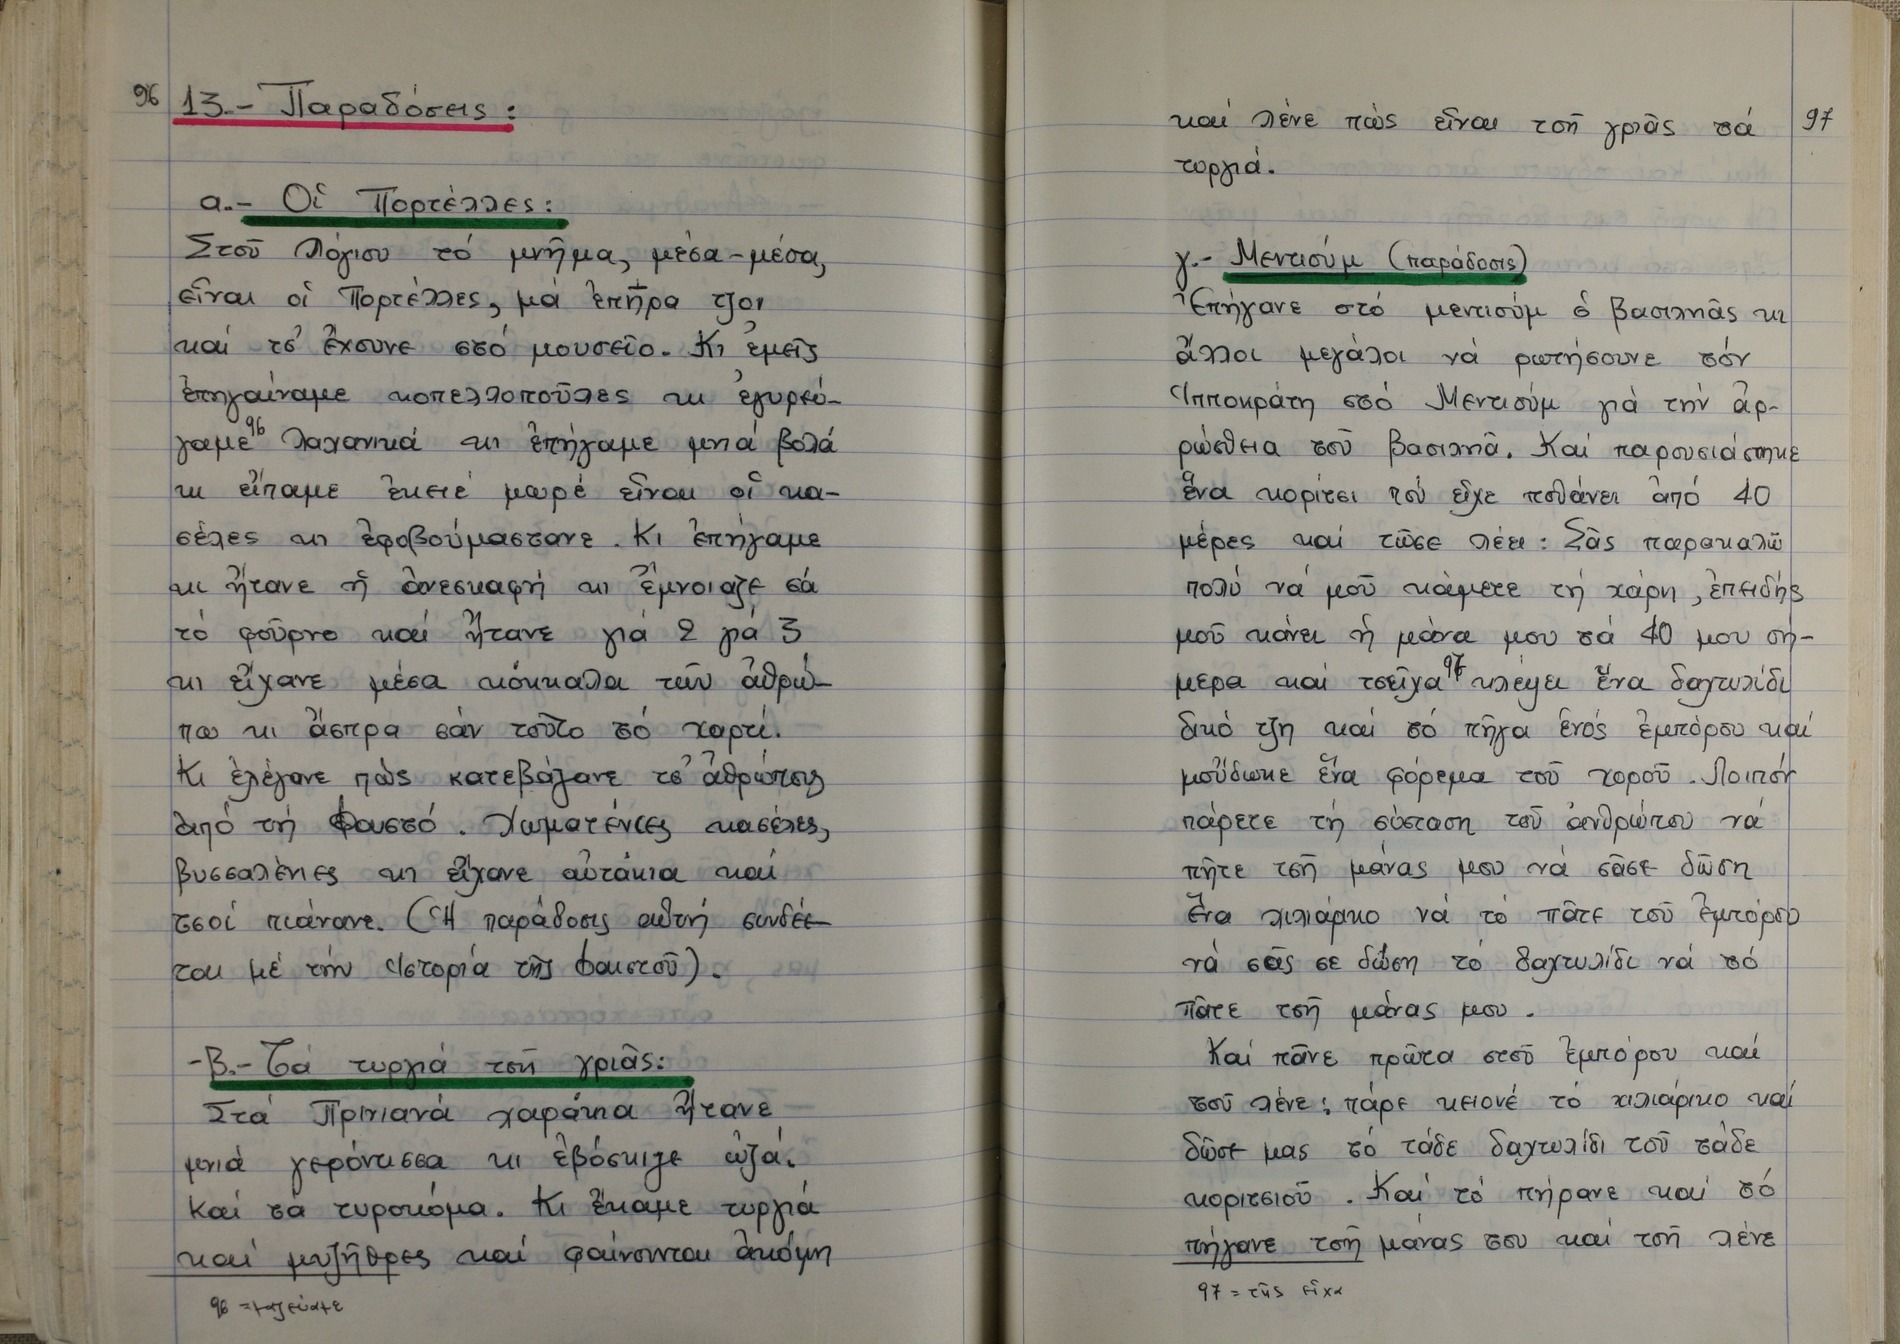 96
13.- Παραδόσεις:
α.- Οἱ Πορτέλλες:
Στοῦ Λόγιου τό μνῆμα, μέσα-μέσα,
εἶναι οἱ Πορτέλλες, μά ἐπῆρα τζοι
καί τσ' ἔχουνε στό μουσεῖο. Κι ἐμεῖς
ἐπηγαίναμε κοπελλοποῦλες κι ἐγυρεύ-
γαμε96 λαχανικά κι ἐπήγαμε μνιά βολά
κι εἴπαμε ἐκειέ μωρέ εἶναι οἱ κα-
σέλες κι ἐφοβούμαστανε. Κι ἐπήγαμε
κι ἤτανε ἡ ἀνεσκαφή κι ἔμνοιαζε σά
τό φοῦρνο καί ἤτανε γιά 2 γιά 3
κι εἴχανε μέσα κόκκαλα τῶν ἀθρώ-
πω κι ἄσπρα σάν τοῦτο τό χαρτί.
Κι ἐλέγανε πώς κατεβάζανε τσ' ἀθρώπους
ἀπό τή Φουστό. Χωματένιες κασέλες,
βυσσαλένιες κι εἴχανε αὐτάκια καί
τσοί πιάνανε. (Ἡ παράδοσις αὐτή συνδέε-
ται μέ τήν Ἱστορία τῆς Φαιστοῦ).
-β.- Τά τυργιά τσῆ γριᾶς:
Στά Πρινιανά χαράκια ἤτανε
μνιά γερόντισσα κι ἐβόσκιζε ὠζά.
Καί τά τυροκόμα. Κι ἔκαμε τυργιά
καί μυζῆθρες καί φαίνονται ἀκόμη
96 = μαζεύαμε
97
καί λένε πώς εἶναι τσῆ γριᾶς τά
τυργιά.
γ.- Μεντιούμ (παράδοσις)
Ἐπήγανε στό μεντιούμ ὁ βασιλιᾶς κι
ἄλλοι μεγάλοι νά ρωτήσουνε τόν
Ἱπποκράτη στό Μεντιούμ γιά τήν ἀρ-
ρώσθεια τοῦ βασιλιᾶ. Καί παρουσιάστηκε
ἕνα κορίτσι πού εἶχε πεθάνει ἀπό 40
μέρες καί τῶσε λέει: Σᾶς παρακαλῶ
πολύ νά μοῦ κάμετε τή χάρη, ἐπειδής
μοῦ κάνει ἡ μάνα μου τά 40 μου σή-
μερα καί τσεῖχα97 κλέψει ἕνα δαχτυλίδι
δικό τζη καί τό πῆγα ἑνός ἐμπόρου καί
μοὔδωκε ἕνα φόρεμα τοῦ χοροῦ. Λοιπόν
πάρετε τή σύσταση τοῦ ἀνθρώπου νά
πῆτε τσῆ μάνας μου νά σᾶσε δώση
ἕνα χιλιάρικο νά τό πᾶτε τοῦ ἐμπόρου
νά σᾶς σε δώση τό δαχτυλίδι νά τό
πᾶτε τσῆ μάνας μου.
Καί πᾶνε πρῶτα στοῦ ἐμπόρου καί
τοῦ λένε: πάρε κειονέ τό χιλιάρικο καί
δῶσε μας τό τάδε δαχτυλίδι τοῦ τάδε
κοριτσιοῦ. Καί τό πήρανε καί τό
πήγανε τσῆ μάνας του καί τσῆ λένε
97 = τῆς εἶχα